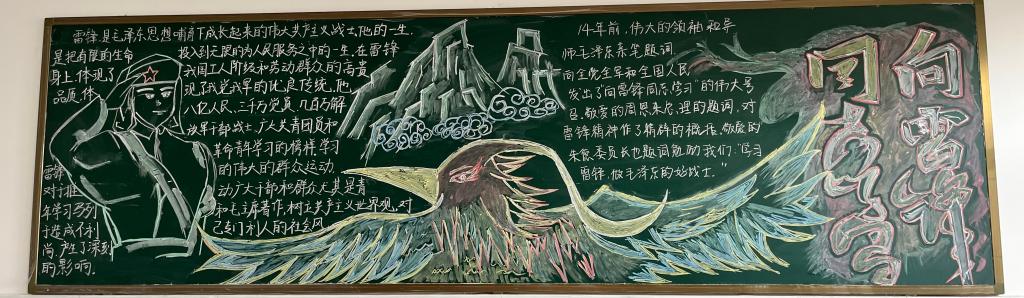 雷锋是毛泽东思想哺育下成长起来的伟大共产主义战士,他的一生,
是把有限的生命 投入到无限的为人民服务之中的一生,在雷锋
身上,体现了 我国工人阶级和劳动群众的高贵
品质,体 现了我党我军的优良传统,他
八亿人民、三千万党员,几百万解
放军干部战士,广大共青团员和
革命青年学习的榜样,学习
雷锋 的伟大的群众运动,
对于推 动广大干部和群众尤其是青
年学习马列 和毛主席著作,树立共产主义世界观,对
于造成不利 己专门利人的社会风
尚,产生了深刻
的影响。
14年前,伟大的领袖和导
师毛泽东亲笔题词
向全党全军和全国人民
发出了"向雷锋同志学习"的伟大号
召,敬爱的周恩来总理的题词,对
雷锋精神作了精辟的概括,敬爱的
朱德委员长也题词勉励我们:"学习
雷锋,做毛泽东的好战士。"
向雷锋
同志学习